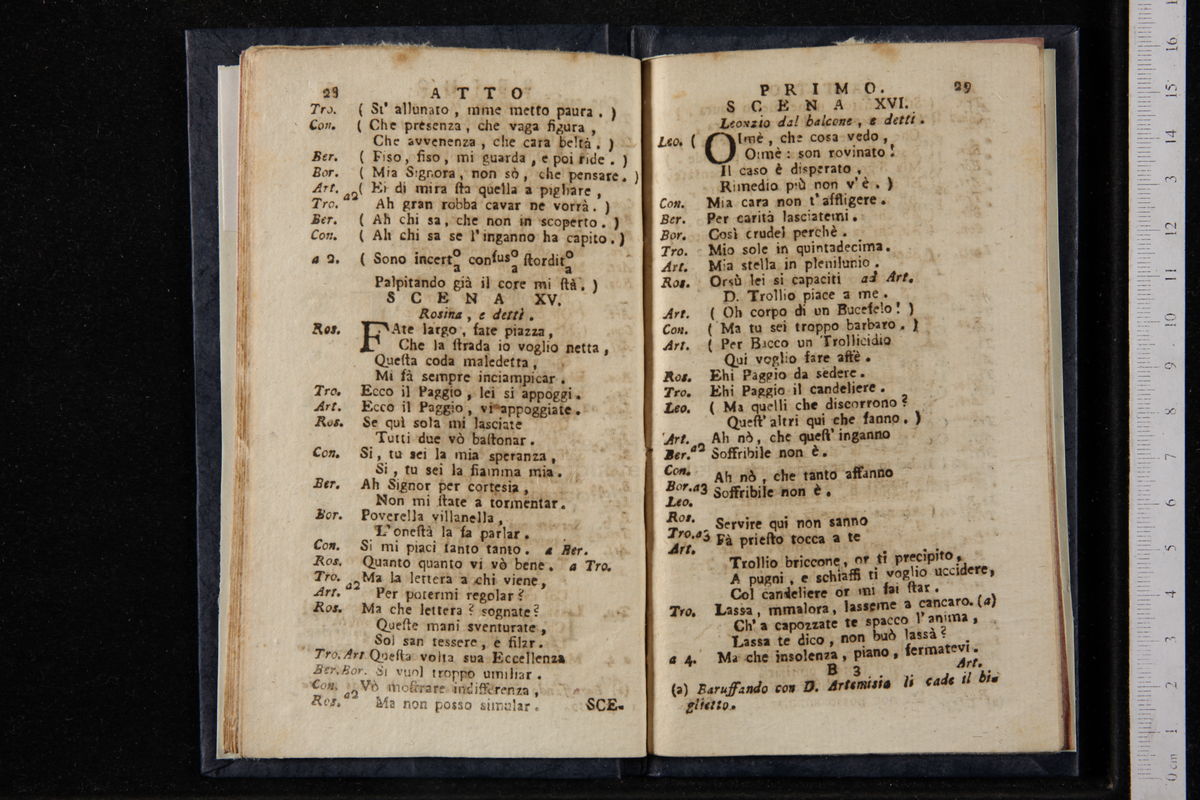 28 ATTO
Tro. ( Si' allunato , mme metto paura . )
Con. ( Che presenza , che vaga figura ,
Che avvenenza , che cara beltà . )
Ber. ( Fiso , fiso , mi guarda , e poi ride . )
Bor. ( Mia Signora , non sò , che pensare . )
Art. a2 ( Ei di mira sta quella a pigliare ,
Tro. Ah gran robba cavar ne vorrà . )
Ber. ( Ah chi sa , che non in scoperto . )
Con. ( Ah chi sa se l'inganno ha capito . )
a 2. ( Sono incert o/a confus o/a stordit o/a
Palpitando già il core mi stà . )
SCENA XV.
Rosina , e detti .
Ros. FAte largo , fate piazza ,
Che la strada io voglio netta ,
Questa coda maledetta ,
Mi fà sempre inciampicar .
Tro. Ecco il Paggio , lei si appoggi .
Art. Ecco il Paggio , vi appoggiate .
Ros. Se quì sola mi lasciate
Tutti due vò bastonar .
Con. Si , tu sei la mia speranza ,
Si , tu sei la fiamma mia .
Ber. Ah Signor per cortesia ,
Non mi state a tormentar .
Bor. Poverella villanella ,
L'onestà la fa parlar .
Con. Si mi piaci tanto tanto . a Ber.
Ros. Quanto quanto vi vò bene . a Tro.
Tro. a2 Ma la lettera a chi viene ,
Art. Per potermi regolar ?
Ros. Ma che lettera ? sognate ?
Queste mani sventurate ,
Sol san tessere , e filar .
Tro. Art. Questa volta sua Eccellenza
Ber. Bor. Si vuol troppo umiliar .
Con. a2 Vò mostrare indifferenza ,
Ros. Ma non posso simular .
SCE-
PRIMO. 29
SCENA XVI.
Leonzio dal balcone , e detti .
Leo. ( OImè , che cosa vedo ,
Oimè : son rovinato !
Il caso è disperato ,
Rimedio più non v'è . )
Con. Mia cara non t'affligere .
Ber. Per carità lasciatemi .
Bor. Così crudel perchè .
Tro. Mio sole in quintadecima .
Art. Mia stella in plenilunio .
Ros. Orsù lei si capaciti ad Art.
D. Trollio piace a me .
Art. ( Oh corpo di un Bucefelo ! )
Con. ( Ma tu sei troppo barbaro . )
Art. ( Per Bacco un Trollicidio
Qui voglio fare affè .
Ros. Ehi Paggio da sedere .
Tro. Ehi Paggio il candeliere .
Leo. ( Ma quelli che discorrono ?
Quest'altri qui che fanno . )
Art. Ah nò , che quest'inganno
Ber. a2 Soffribile non è .
Con. Ah nò , che tanto affanno
Bor. a3 Soffribile non è .
Leo.
Ros. Servire qui non sanno
Tro. a3 Fà priesto tocca a te
Art.
Trollio briccone , or ti precipito ,
A pugni , e schiaffi ti voglio uccidere ,
Col candeliere or mi fai star .
Tro. Lassa , mmalora , lasseme a cancaro . (a)
Ch'a capozzate te spacco l'anima ,
Lassa te dico , non buò lassà ?
a 4. Ma che insolenza , piano , fermatevi .
B 3 Art.
(a) Baruffando con D. Artemisia li cade il bi-
glietto .
0 cm 1 2 3 4 5 6 7 8 9 10 11 12 13 14 15 16